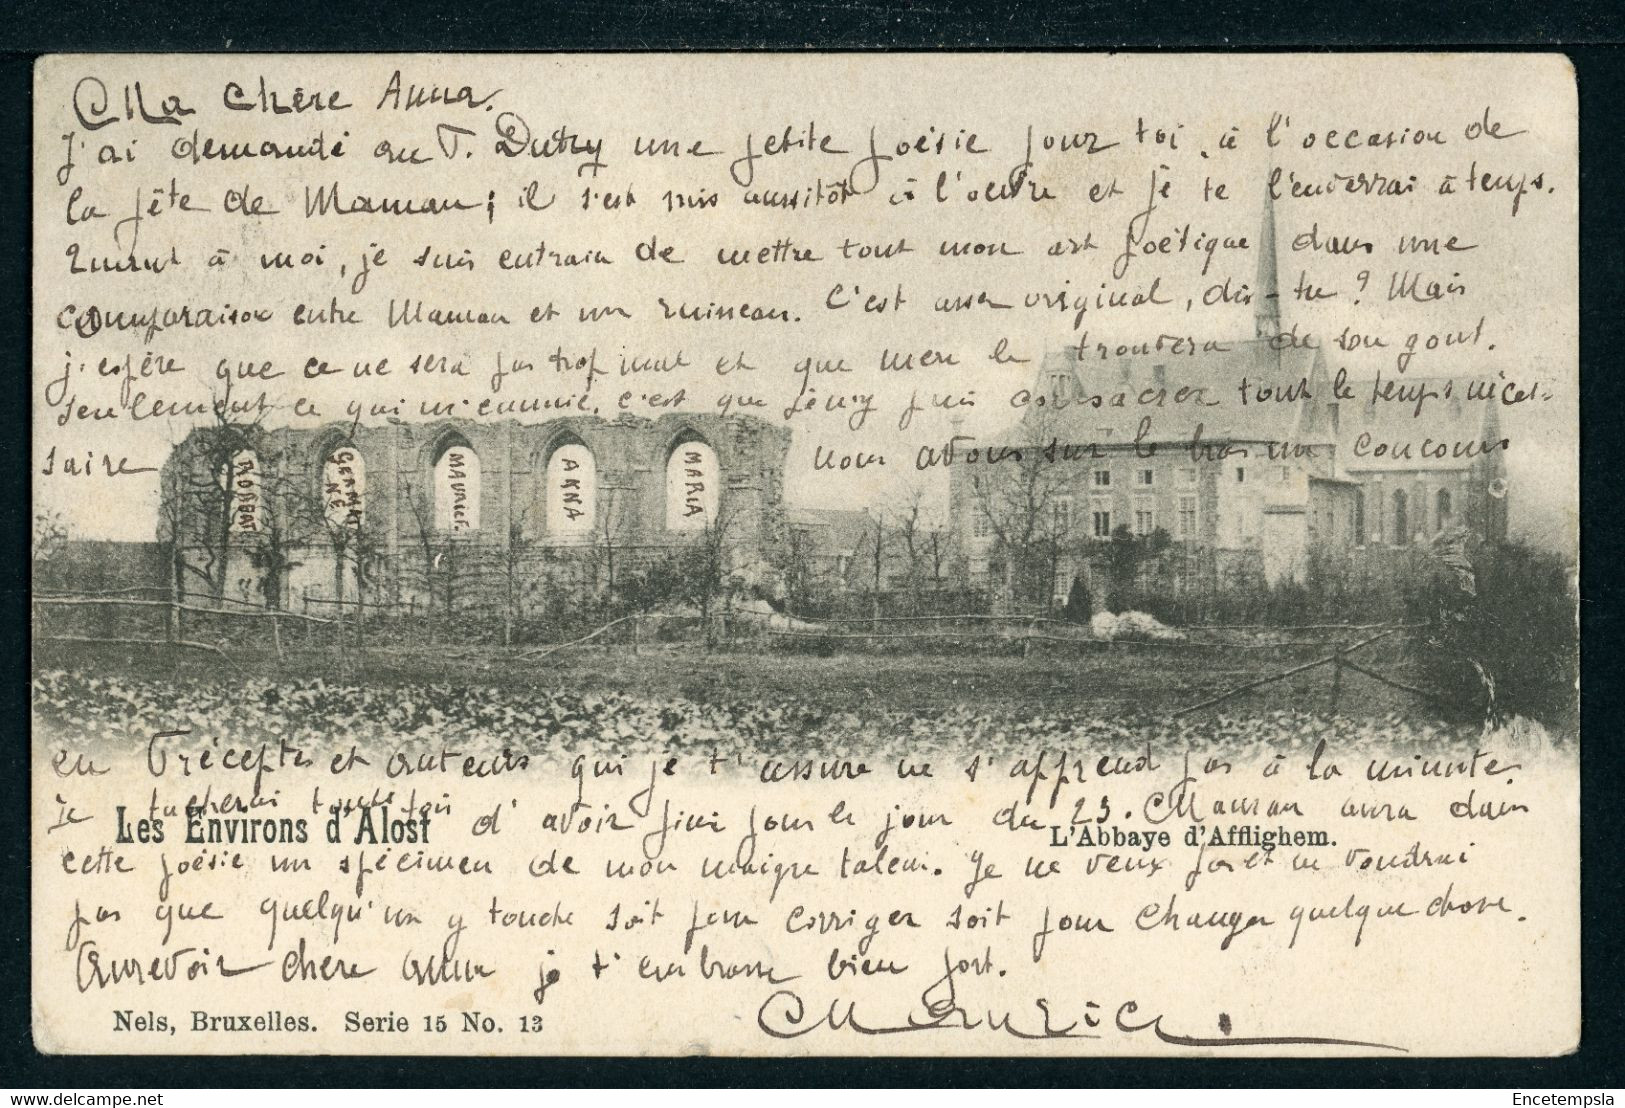 Ma chère Anna.
J'ai demandé au P. Dutry une petite poésie pour toi, à l'occasion de
la fête de Maman; il s'est mis aussitôt à l'œuvre et je te l'enverrai à temps.
Quant à moi, je suis entrain de mettre tout mon art poétique dans une
comparaison entre Maman et un ruisseau. C'est assez original, dis-tu? Mais
j'espère que ce ne sera pas trop mal et que mère le trouvera de son gout.
Seulement ce qui m'ennuie, c'est que j'y puis consacrer tout le temps néces-
saire nous avons sur le bras un concours
ROBERT
GERMAINE
MAURICE
ANNA
MARIA
en Préceptes et auteurs qui je t'assure ne s'apprend pas à la minute.
Je tacherai toutefois d'avoir fini pour le jour du 23. Maman aura dans
Les Environs d'Alost
L'Abbaye d'Afflighem.
cette poésie un spécimen de mon maigre talent. Je ne veux pas et ne voudrai
pas que quelqu'un y touche soit pour corriger soit pour changer quelque chose.
Aurevoir chère Anna je t'embrasse bien fort.
Maurice.
Nels, Bruxelles. Serie 15 No. 13
www.delcampe.net
Encetempsla